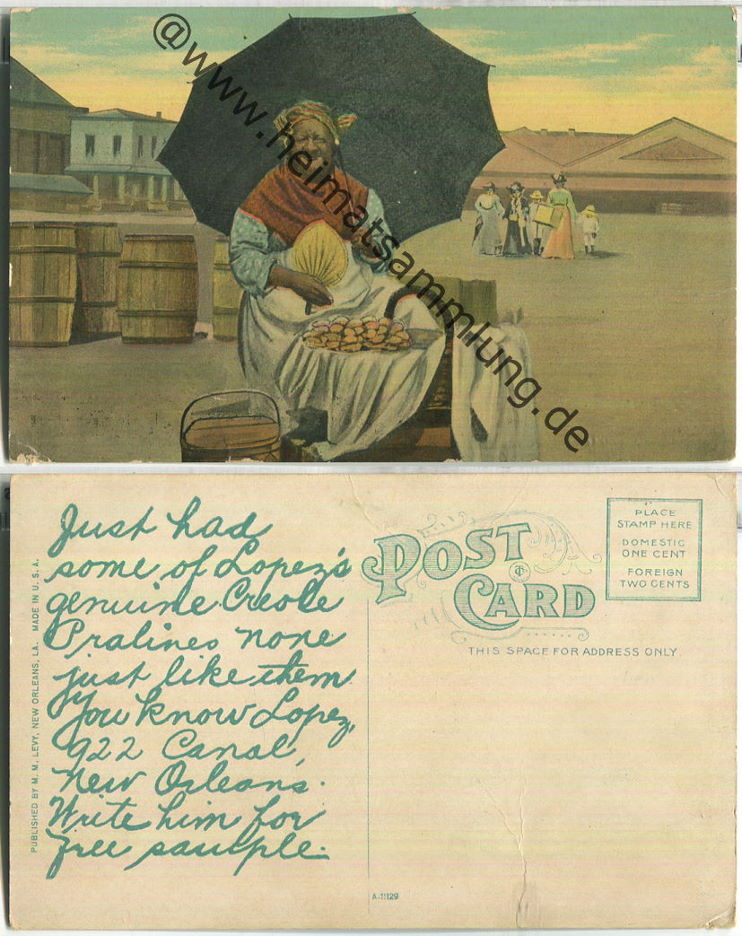 @www.heimatsammlung.de
Just had
some of Lopez's
genuine Creole
Pralines none
just like them
You know Lopez,
922 Canal,
New Orleans.
Write him for
free sample.
PUBLISHED BY M. M. LEVY, NEW ORLEANS, LA. MADE IN U. S. A.
POST
CARD
THIS SPACE FOR ADDRESS ONLY.
PLACE
STAMP HERE
DOMESTIC
ONE CENT
FOREIGN
TWO CENTS
A-11129